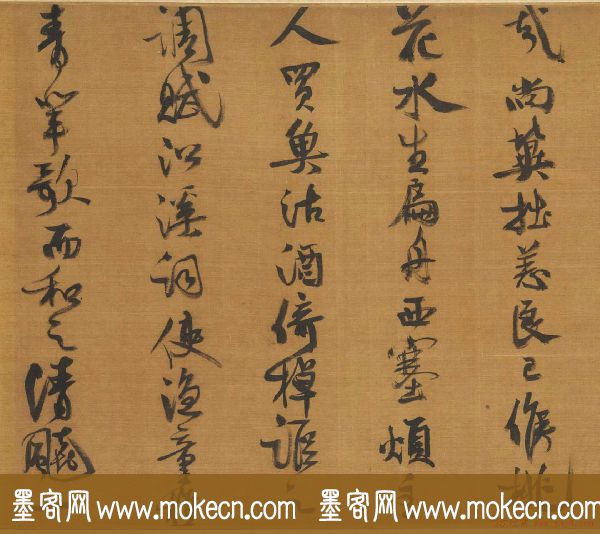 哉尚冀拙恙良已候桃
花水生扁舟西塞煩
人買魚沽酒倚棹謳之
調賦沿溪詞使漁童
青 歌而和之清飈
墨客网 www.mokecn.com 墨客网 www.mokecn.com